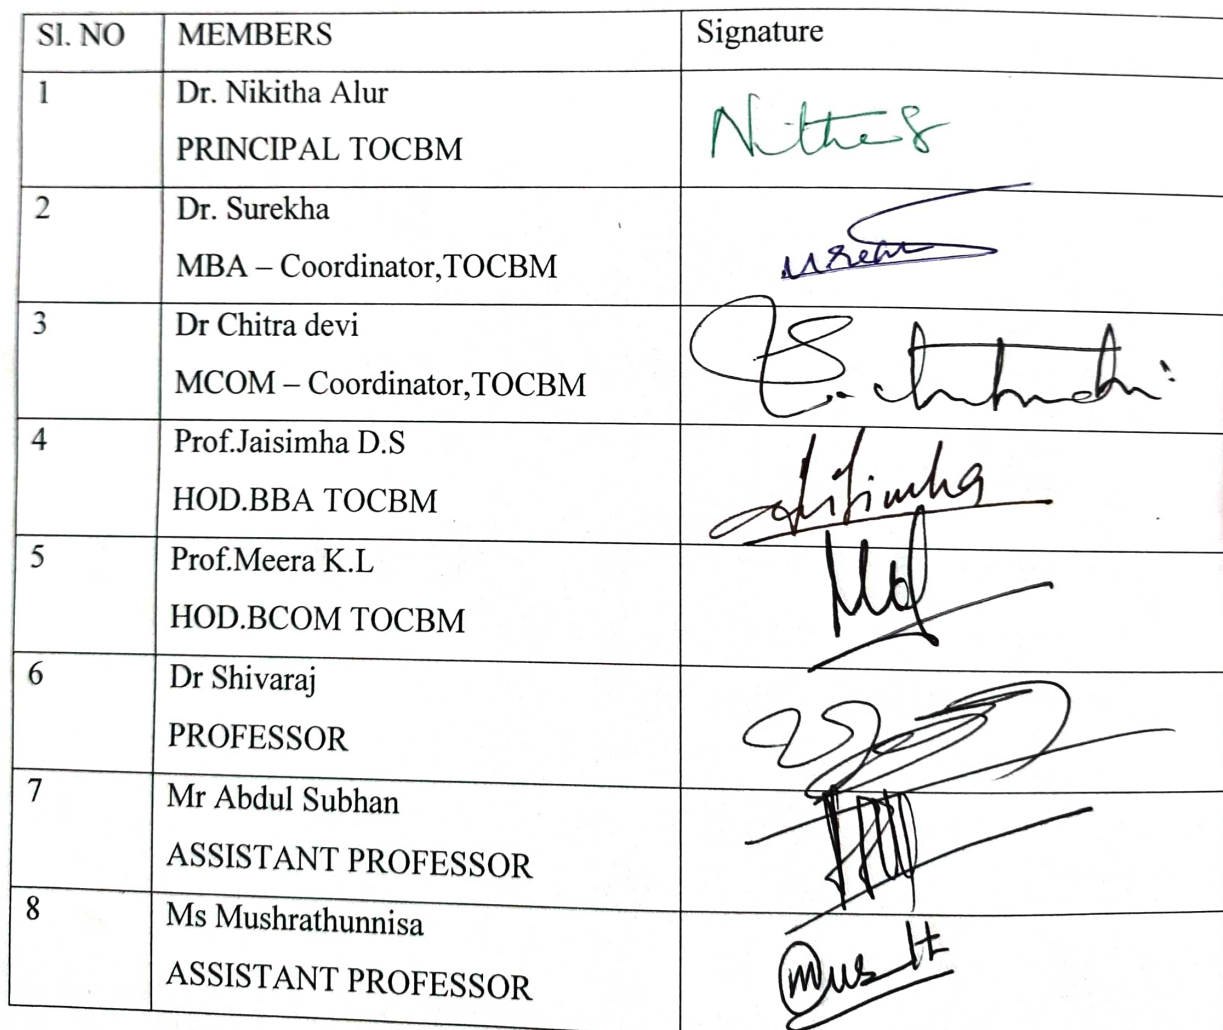 Sl. NO MEMBERS Signature
1 Dr. Nikitha Alur
PRINCIPAL TOCBM
2 Dr. Surekha
MBA – Coordinator,TOCBM
3 Dr Chitra devi
MCOM – Coordinator,TOCBM
4 Prof.Jaisimha D.S
HOD.BBA TOCBM
5 Prof.Meera K.L
HOD.BCOM TOCBM
6 Dr Shivaraj
PROFESSOR
7 Mr Abdul Subhan
ASSISTANT PROFESSOR
8 Ms Mushrathunnisa
ASSISTANT PROFESSOR